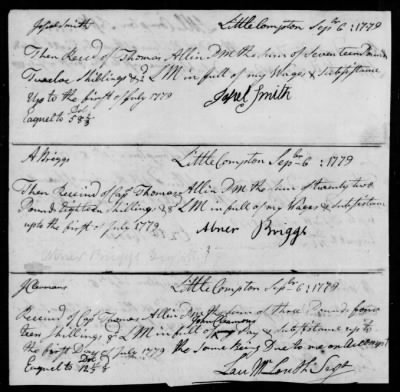 Josiel Smith Little Compton Sepbr 6 : 1779
Then Reced of Thomas Allin D M the sum of Seventeen Pound
Twelve Shillings & LM in full of my Wages & Subsistance
Up to the first of July 1779
Eaquel to 58 2/3 Josiel Smith
A Briggs Little Compton Sepbr 6 : 1779
Then Receivd of Capt Thomas Allin D M the sum of twenty two
Pound Eighteen Shillings & LM in full of my Wages & Subsistance
upto the first of July 1779
Abner Briggs
Abner Briggs
Little Compton Sepbr 6 : 1779
Receivd of Capt Thomas Allin D M the sum of three Pound four
teen Shillings & LM in full of John Clemans Pay & Subsistance up to
the first Day of July 1779 the same being Due to me on Accompt
Eaquel to